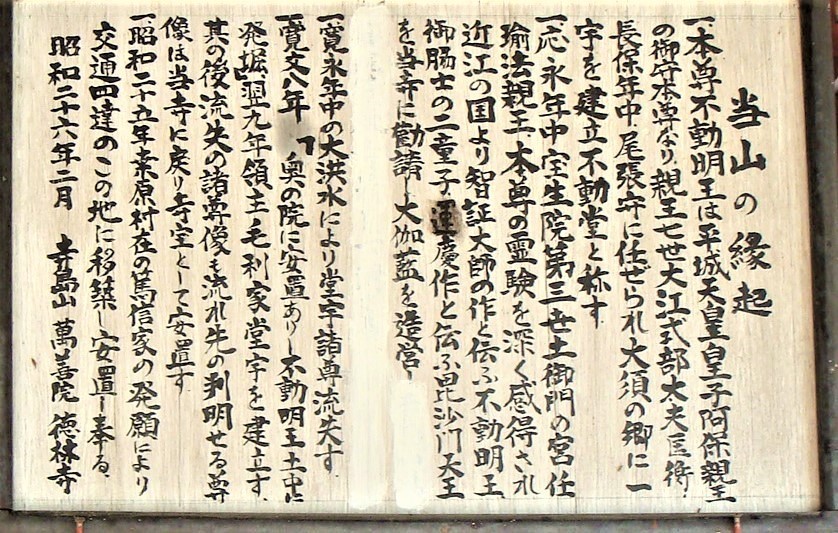 当山の縁起
一、本尊不動明王は平城天皇皇子阿保親王
の御守本尊なり、親王七世大江式部太夫匡衡、
長保年中尾張守に任ぜられ大須の郷に一
宇を建立不動堂と称す
一、応永年中宝生院第三世土御門の宮任
瑜法親王本尊の霊験を深く感得され
近江の国より智証大師の作と伝ふ不動明王
御脇士の二童子、運慶作と伝ふ毘沙門天王
を当寺に勧請し大伽藍を造営し
一、寛永年中の大洪水により堂宇諸尊流失す
一、寛文八年 奥の院に安置ありし不動明王土中に
発掘翌九年領主毛利家堂宇を建立す、
其の後流失の諸尊像も流れ先の判明せる尊
像は当寺に戻り寺宝として安置す
一、昭和二十五年桑原村在の篤信家の発願により
交通四達のこの地に移築し安置し奉る、
昭和二十六年二月 寺島山 萬善院 徳林寺